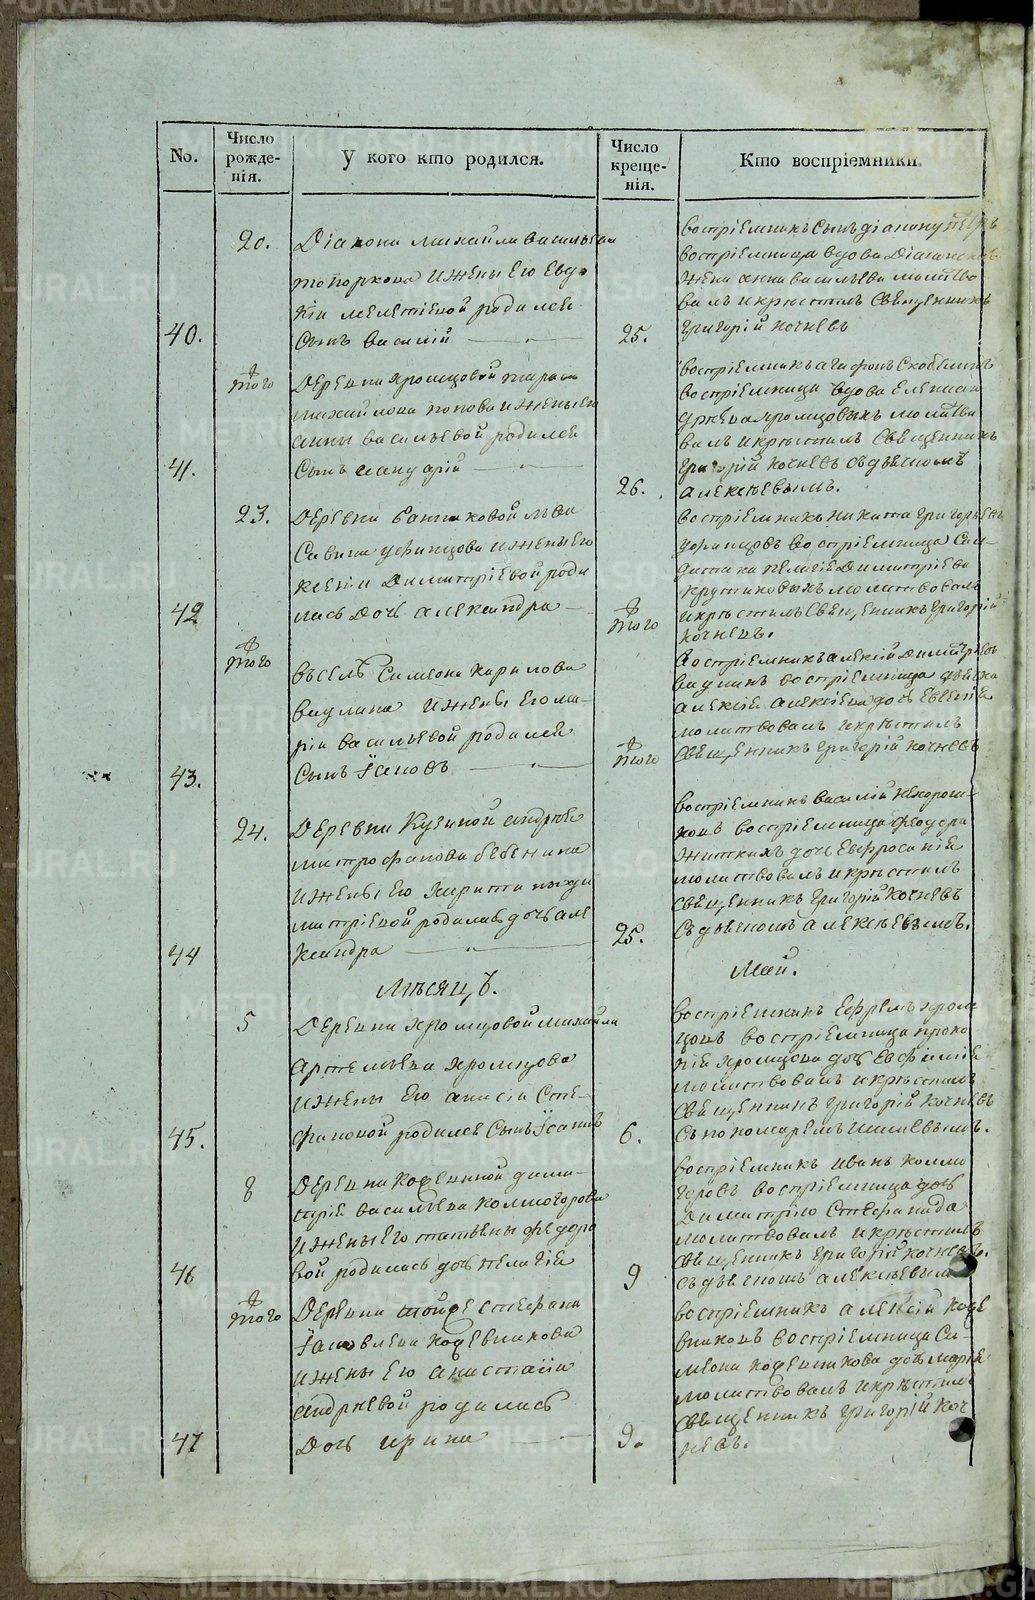 No.
Число рожде-нія.
У кого кто родился.
Число креще-нія.
Кто воспріемники.
20.
Діакона михайла васильева
топоркова и жены его евдо
кіи мелетіевой родился
40.
сынъ василій
25.
воспріемникъ сынъ діакону петръ
воспріемница вдова діаконска
жена анна васильева молитво
валъ и крестилъ священникъ
григорій кочневъ
того
Деревни хромцовой тараса
михайлова попова и жены его
анны васильевой родился
41.
сынъ
26.
воспріемникъ агафонъ скобелинъ
воспріемница вдова елена
хромцовыхъ молитво
валъ и крестилъ священникъ
григорій кочневъ съ дьячкомъ
алексѣевымъ.
23.
Деревни банниковой льва
савина уфинцова и жены его
ксеніи димитріевой роди
42
лась дочь александра
того
воспріемникъ никита григорьевъ
уфинцовъ воспріемница сол-
датка пелагія димитріева
крутиковыхъ молитвовалъ
и крестилъ священникъ григорій
кочневъ.
того
въ селѣ симеона кирилова
ваулина и жены его ма-
ріи васильевой родился
43.
сынъ Іаковъ
того
воспріемникъ алексій димитріевъ
ваулинъ воспріемница дьячка
алексія алексіева дочь евгенія
молитвовалъ и крестилъ
священникъ григорій кочневъ
24.
Деревни кузиной андрея
митрофанова бебенина
и жены его харитины ди
митріевой родилась дочь але
44
ксандра
25.
воспріемникъ василій
воспріемница феодора
житкихъ дочь евфросинія
молитвовалъ и крестилъ
священникъ григорій кочневъ
съ дьячкомъ алексѣевымъ.
Мѣсяцъ.
Май.
5
Деревни хромцовой михайла
артемьева хромцова
и жены его анисіи сте-
45.
фановой родился сынъ Ісаакъ
6.
воспріемникъ ефремъ хром
цовъ воспріемница проко
пія хромцова дочь евфимія
молитвовалъ и крестилъ
священникъ григорій кочневъ
съ пономаремъ
8
Деревни кодинской дими-
трія васильева колмогорова
и жены его татьяны федоро
46
вой родилась дочь пелагія
9
воспріемникъ иванъ колмо
горовъ воспріемница дочь
димитрію стефанида
молитвовалъ и крестилъ
священникъ григорій кочневъ.
съ дьячкомъ алексѣевымъ
того
Деревни тойже стефана
Іаковлева кожевникова
и жены его анастасіи
андреевой родилась
47
дочь ирина
9.
воспріемникъ алексій коже
вниковъ воспріемница си-
меона кожевникова дочь марья
молитвовалъ и крестилъ
священникъ григорій коч
невъ.
METRIKI.GASO-URAL.RU